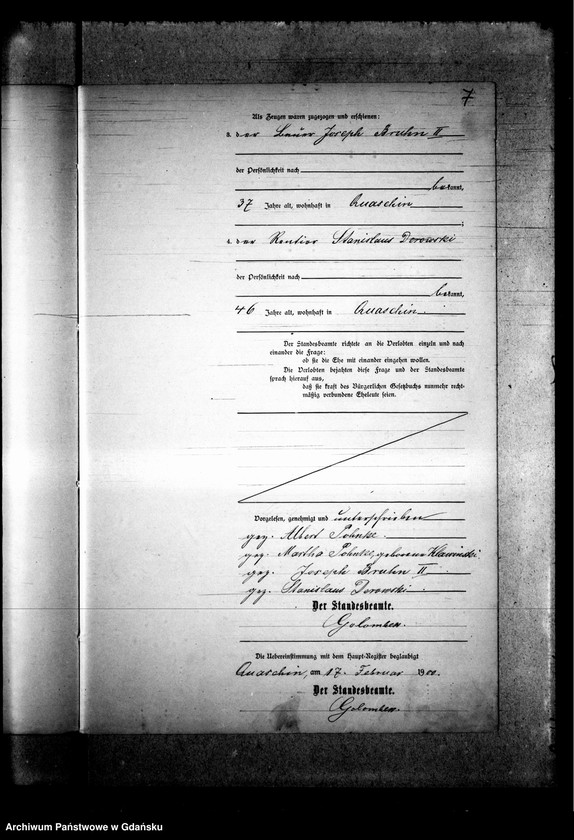 7
Als Zeugen waren zugezogen und erschienen:
3. der Bauer Joseph Bruhn II
der Persönlichkeit nach
bekannt,
37 Jahre alt, wohnhaft in Quaschin
;
4. der Rentier Stanislaus Dorowski
der Persönlichkeit nach
bekannt,
46 Jahre alt, wohnhaft in Quaschin.
Der Standesbeamte richtete an die Verlobten einzeln und nach
einander die Frage:
ob sie die Ehe mit einander eingehen wollen.
Die Verlobten bejahten diese Frage und der Standesbeamte
sprach hierauf aus,
daß sie kraft des Bürgerlichen Gesetzbuchs nunmehr recht-
mäßig verbundene Eheleute seien.
Vorgelesen, genehmigt und unterschrieben
gez. Albert Pohnke.
gez. Martha Pohnke, geborene Klawinski.
gez. Joseph Bruhn II.
gez. Stanislaus Dorowski.
Der Standesbeamte.
Golombek.
Die Uebereinstimmung mit dem Haupt-Register beglaubigt
Quaschin, am 17. Februar 1900.
Der Standesbeamte.
Golombek.
Archiwum Państwowe w Gdańsku